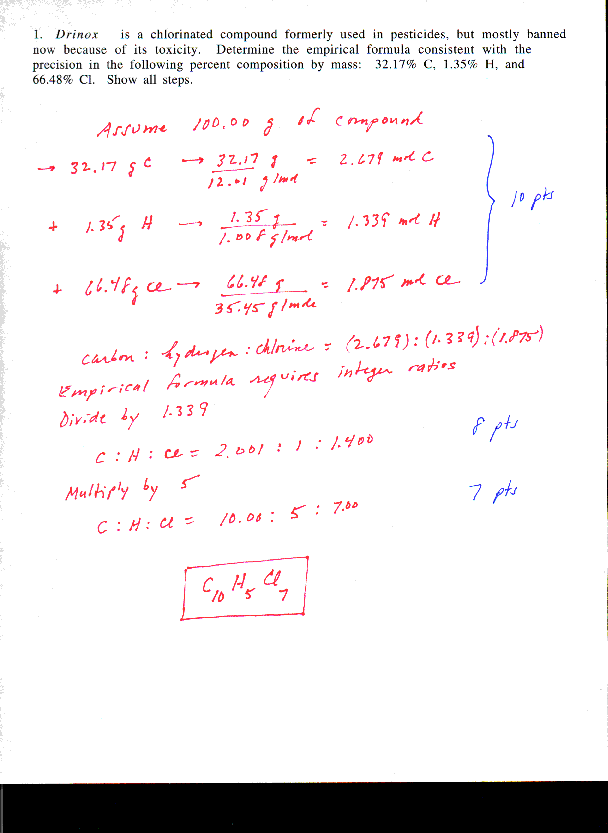 1. Drinox is a chlorinated compound formerly used in pesticides, but mostly banned
now because of its toxicity. Determine the empirical formula consistent with the
precision in the following percent composition by mass: 32.17% C, 1.35% H, and
66.48% Cl. Show all steps.
Assume 100.00 g of compound
→ 32.17 g C → 32.17 g / 12.01 g/mol = 2.679 mol C
+ 1.35 g H → 1.35 g / 1.008 g/mol = 1.339 mol H
10 pts
+ 66.48 g Cl → 66.48 g / 35.45 g/mole = 1.875 mol Cl
carbon : hydrogen : chlorine = (2.679) : (1.339) : (1.875)
Empirical formula requires integer ratios
Divide by 1.339
8 pts
C : H : Cl = 2.001 : 1 : 1.400
Multiply by 5
7 pts
C : H : Cl = 10.00 : 5 : 7.00
C10 H5 Cl7